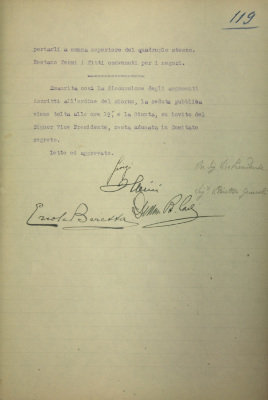 119
portarli a somma superiore del quadruplo stesso.
Restano fermi i fitti convenuti per i negozi.
Esaurita così la discussione degli argomenti
iscritti all'ordine del giorno, la seduta pubblica
viene tolta alle ore 19, e la Giunta, su invito del
Signor Vice Presidente, resta adunata in Comitato
segreto.
Letto ed approvato.